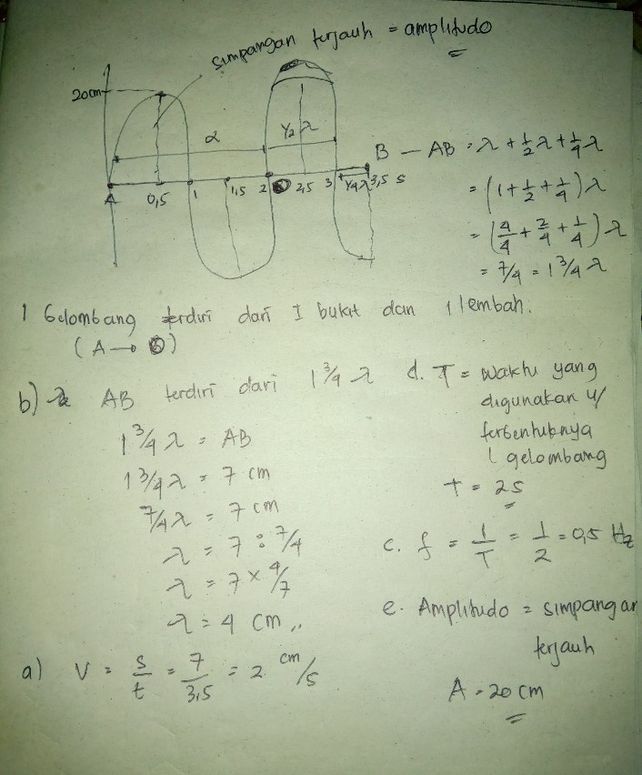 simpangan terjauh = amplitudo
20cm
α
½ λ
B
A
0,5
1
1,5
2
2,5
3
¼ λ
3,5 s
AB = λ + ½ λ + ¼ λ
= (1 + ½ + ¼) λ
= (4/4 + 2/4 + 1/4) λ
= 7/4 = 1 3/4 λ
1 Gelombang terdiri dari I bukit dan 1 lembah.
(A →
b) AB terdiri dari 1 3/4 λ
1 3/4 λ = AB
1 3/4 λ = 7 cm
7/4 λ = 7 cm
λ = 7 : 7/4
λ = 7 × 4/7
λ = 4 cm
a) V = s/t = 7/3,5 = 2 cm/s
d. T = waktu yang
digunakan u/
terbentuknya
1 gelombang
T = 2s
c. f = 1/T = 1/2 = 0,5 Hz
e. Amplitudo = simpangan
terjauh
A = 20 cm